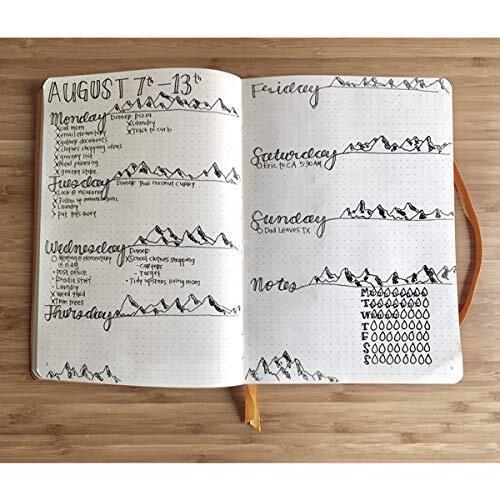 AUGUST 7th-13th
Monday
Dinner: pizza
x call mom
x Laundry
x email elementary
x Trash to curb
x gather documents
x Clothes shopping ideas
x grocery list
x Meal planning
x grocery store
Tuesday
Dinner: Thai coconut curry
x Look @ insurance
x Follow up
> Laundry
> put away
Wednesday
Dinner:
o Meeting @ elementary
x School clothes shopping
@ 11 AM
- Post office
- Target
- Laundry
- Tidy upstairs living room
x Weed yard
x Trim trees
Thursday
Friday
Saturday
o Eric to CA 5:30AM
Sunday
o Dad Leaves TX
Notes
M
T
W
T
F
S
S